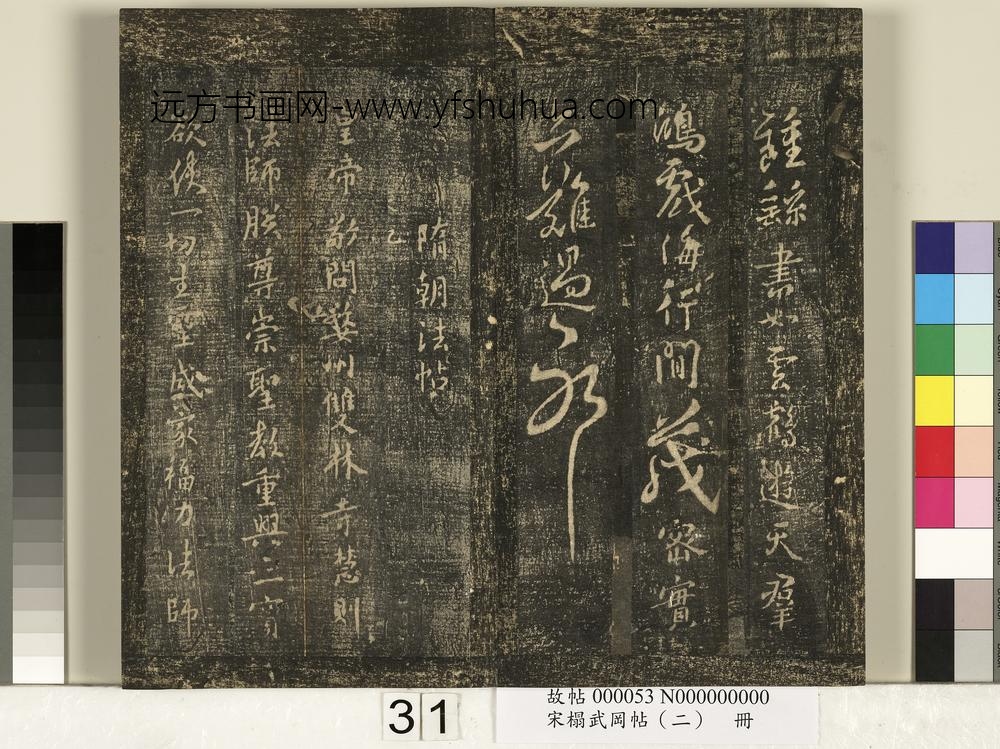 远方书画网-www.yfshuhua.com
鍾繇書如雲鶴遊天羣
鴻戲海行間茂密實
亦難過耶
隋朝法帖
乙
皇帝敬問婺州雙林寺慧則
法師朕尊崇聖教重興三寶
欲使一切生靈咸蒙福力法師
31
故帖 000053 N000000000
宋榻武岡帖（二） 冊